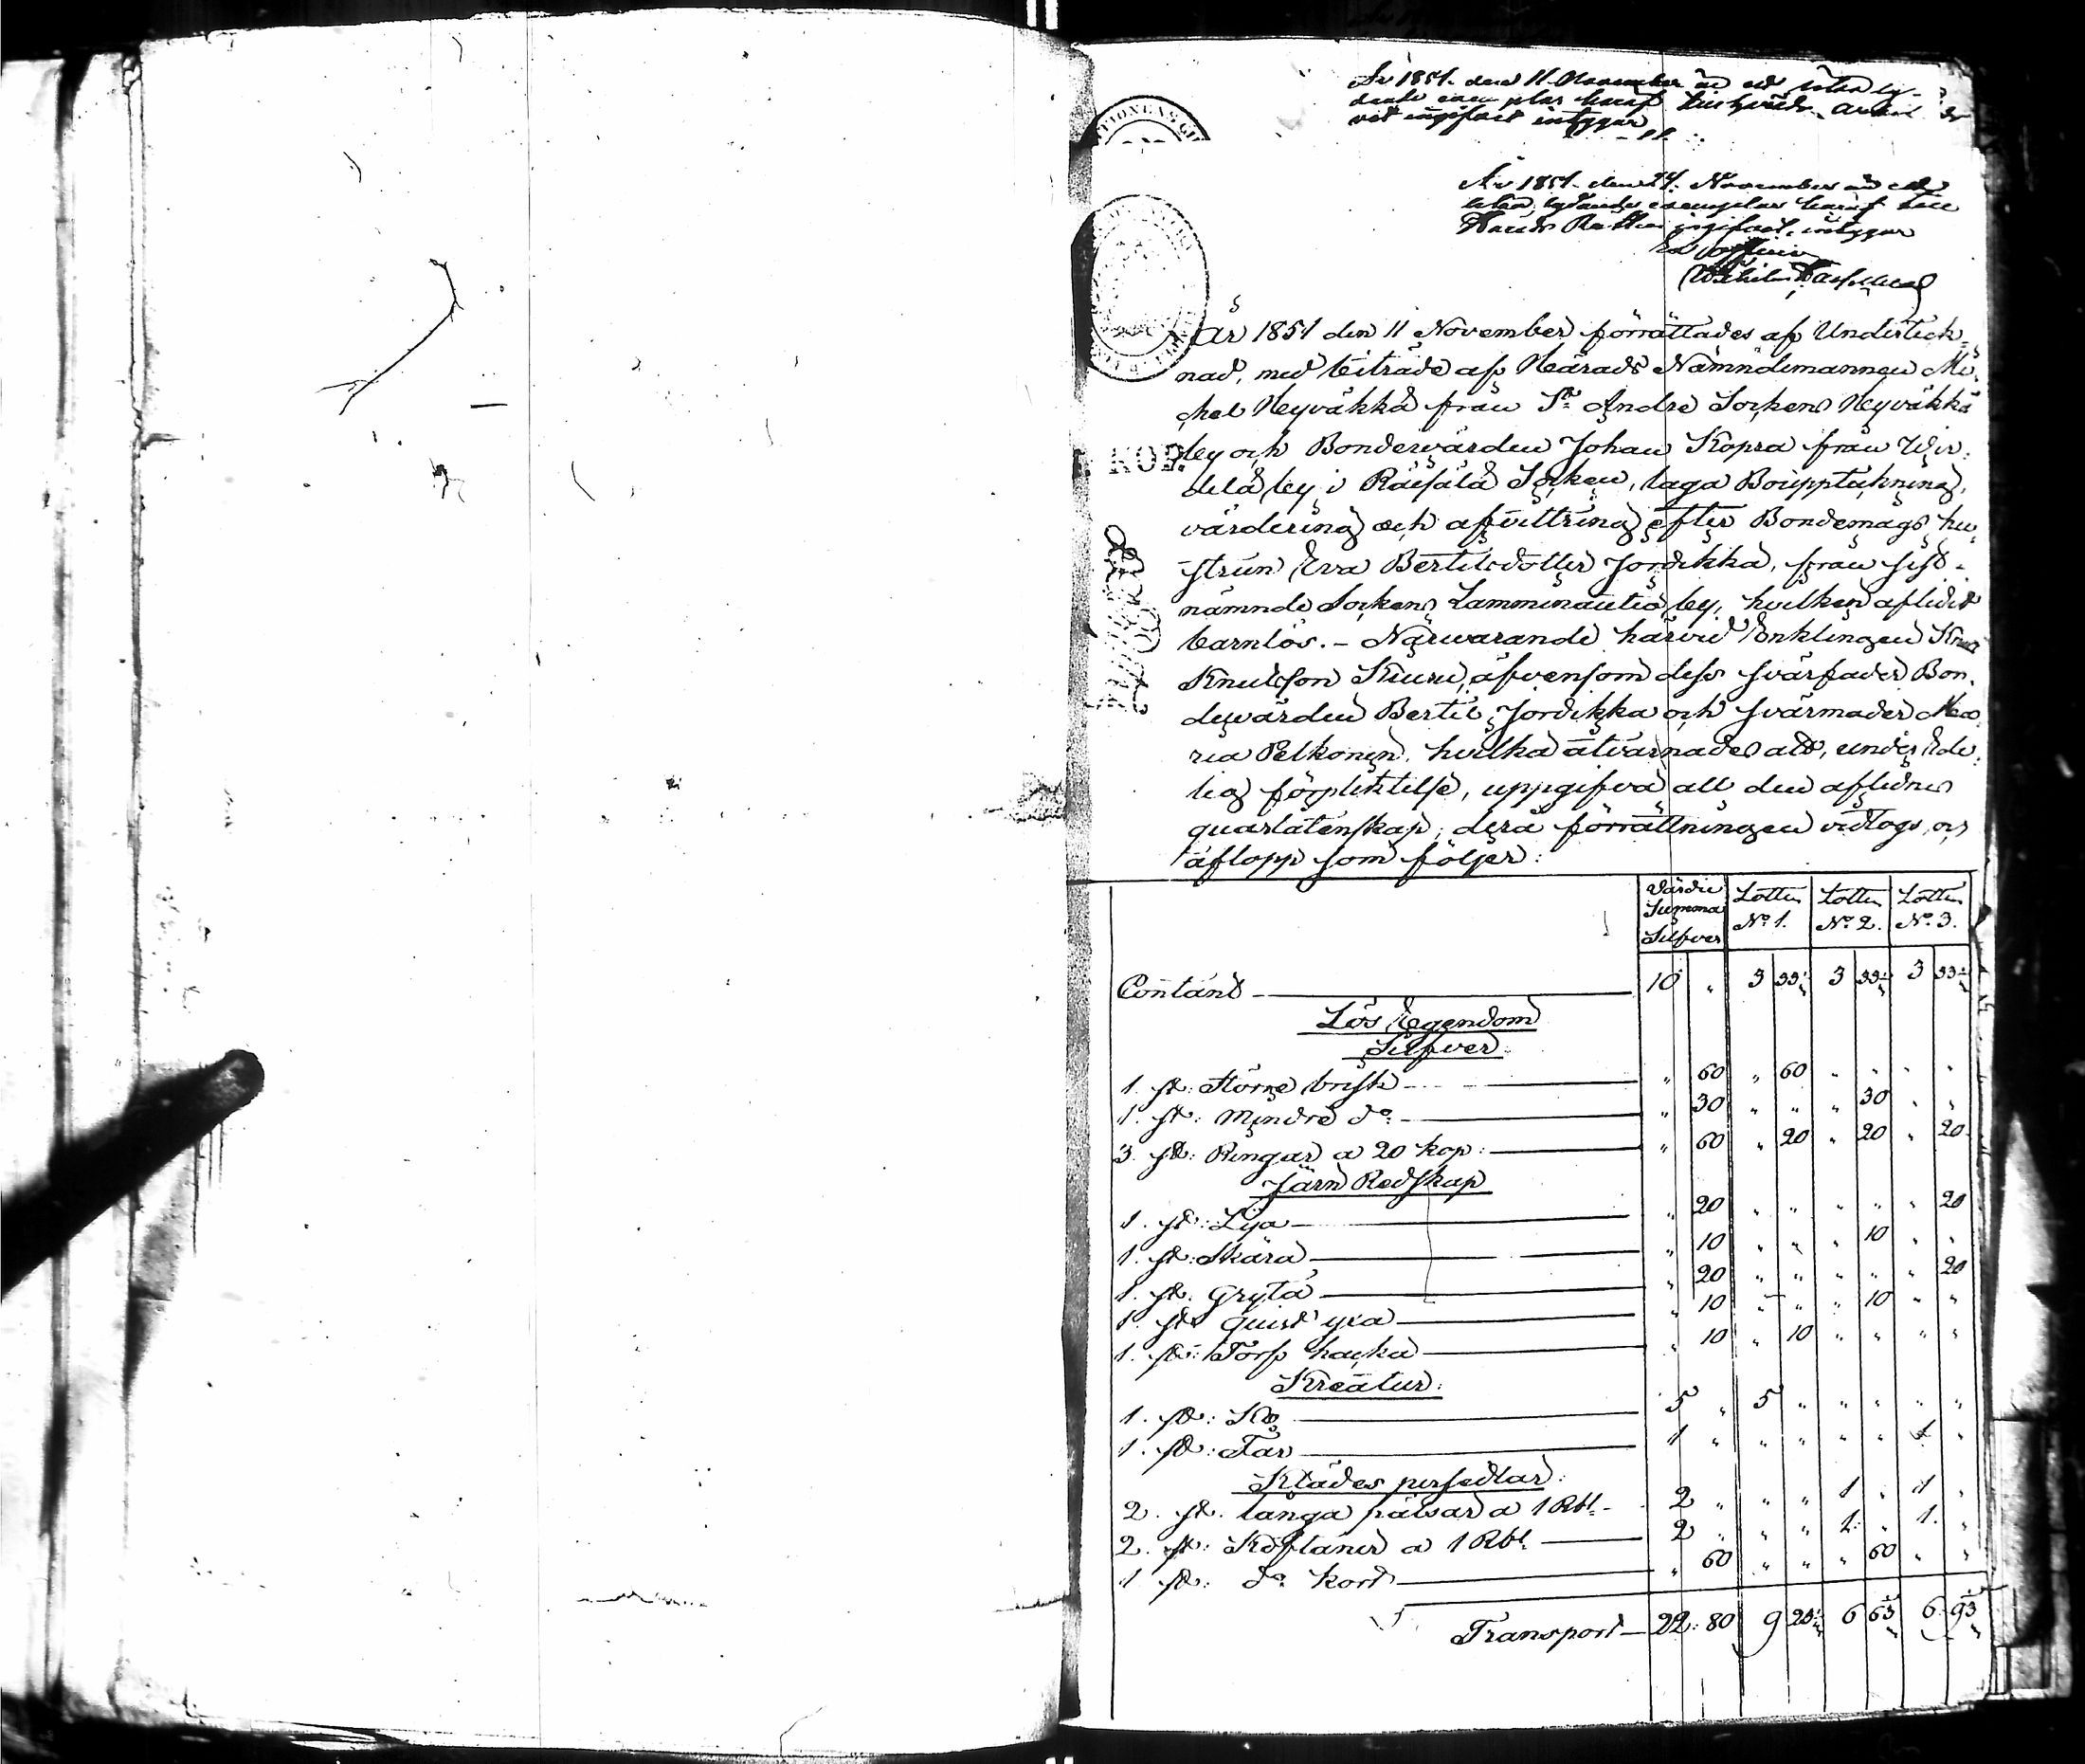 År 1851. den 11. November är ett lika ly-
dande exemplar häraf till Härads arki
vet ingifvet intygar
År 1851. den 24. November är ett
lika lydande exemplar häraf till
Härads Rätten ingifvet, intygar
Ex officio
År 1851 den 11 November förrättades af Underteck-
nad, med biträde af Härads Nämndemannen Mi-
chel Heyväkkä från St Andre Sockens Heyväkkä
by och Bondewärden Johan Kopra från Wir-
delä by i Räisälä Socken, laga Bouppteckning,
värdering och afvittring efter Bondemågs hu-
strun Eva Bertilsdotter Jordikka, från sist-
nämnde Sockens Lamminautio by, hvilken aflidit
barnlös. – Närwarande härvid Enklingen
Knutsson Kiuru, äfvensom dess svärfader Bon-
dewärden Bertil Jordikka och svärmoder Ma-
ria Pelkonen, hvilka åtvarnades att, under Ede-
lig förpliktelse, uppgifva all den aflidnes
quarlåtenskap; derå förrättningen vidtogs, och
aflopp som följer:
Värdie Summa Silfver Lotten No 1. Lotten No 2. Lotten No 3.
Contant 10 " 3 33 1/3 3 33 1/3 3 33 1/3
Lös Egendom
Silfver
1. st: större brisk " 60 " 60 " " " "
1. st: Mindre do " 30 " " " 30 " "
3. st: Ringar a 20 kop: " 60 " 20 " 20 " 20
Järn Redskap
1. st: Lija " 20 " " " " " 20
1. st: Skära " 10 " " " 10 " "
1. st: Gryta " 20 " " " " " 20
1. st: quist yxa " 10 " " " 10 " "
1. st: Torf hacka " 10 " 10 " " " "
Kreatur:
1. st: Ko 5 " 5 " " " " "
1. st: Får 1 " " " " " 1 "
Klädes persedlar:
2. st. långa pälsar a 1 Rbl 2 " " " 1 " 1 "
2. st: Koftaner a 1 Rbl 2 " " " 1 " 1 "
1 st: do kort " 60 " " " 60 " "
Transport 22: 80 9 23 1/3 6 63 1/3 6 93 1/3